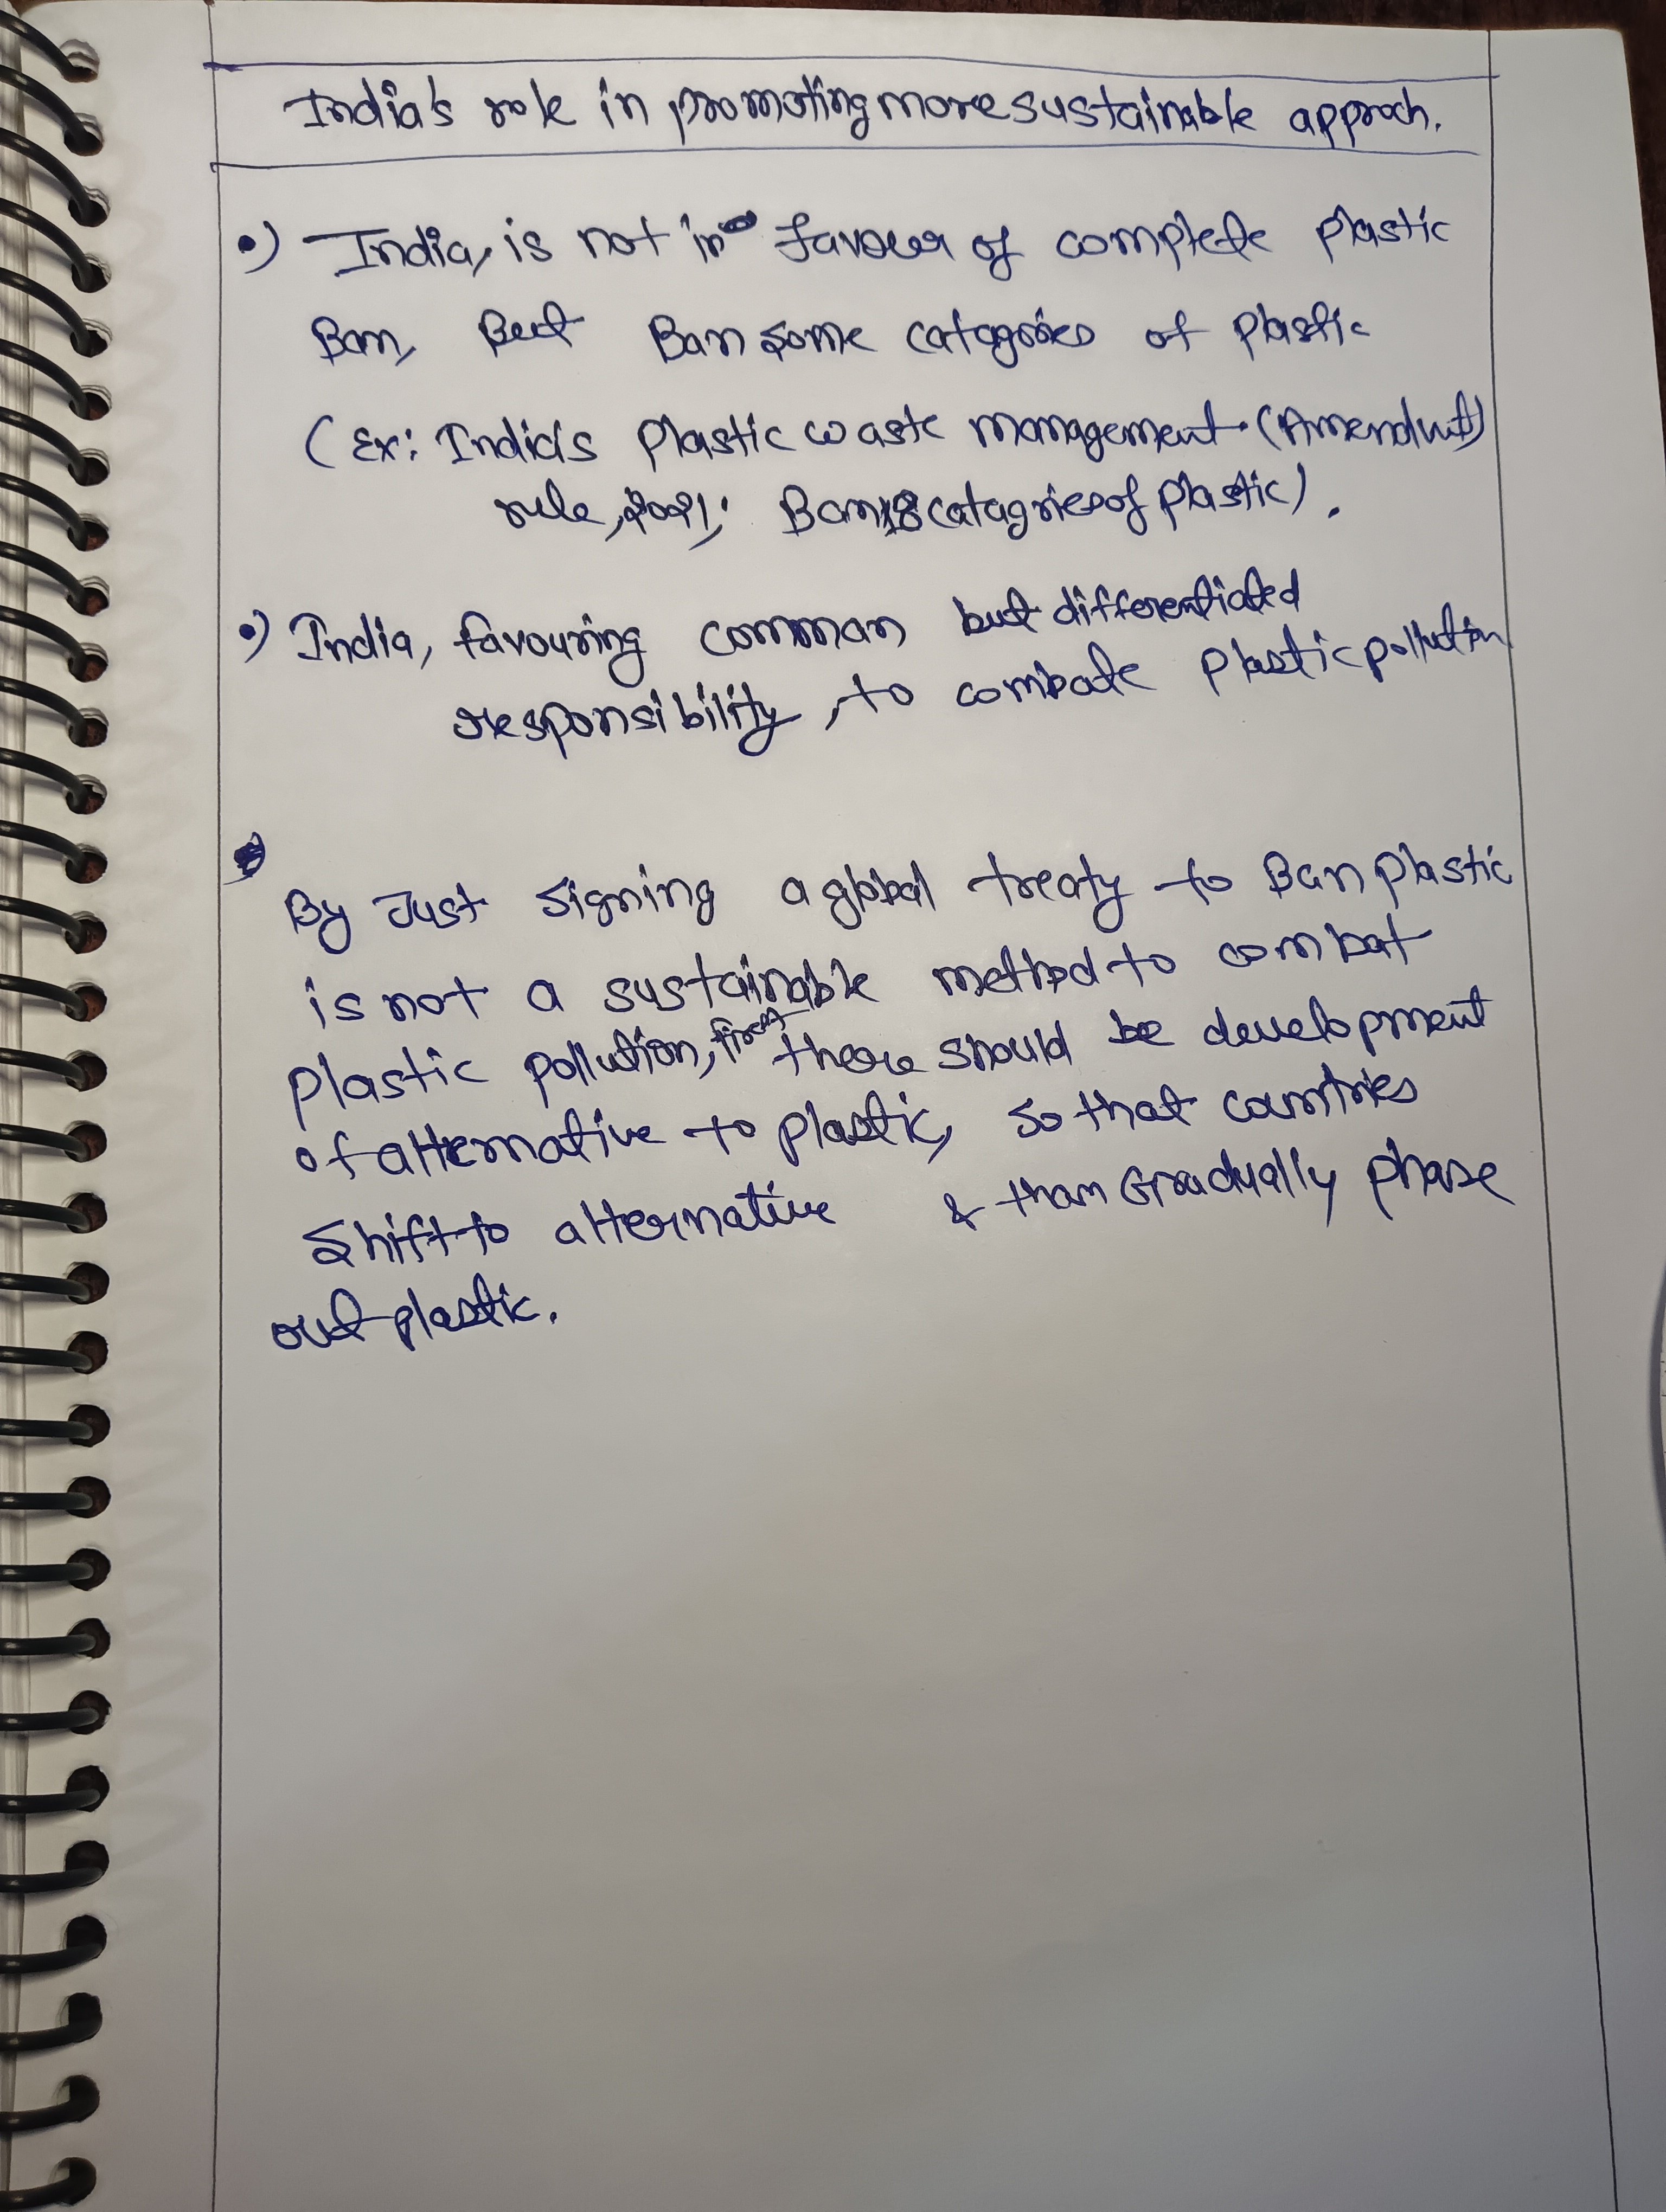 India's role in promoting more sustainable approch.
•) India, is not in favour of complete plastic
Ban, But Ban some catagories of plastic
(Ex: India's Plastic waste management (Amendmt)
rule, 2021; Ban 18 catagries of plastic).
•) India, favouring comman but differentiated
responsibility, to combate plastic pollution
By Just signing a global treaty to Ban plastic
is not a sustainable method to combat
plastic pollution, first there should be development
of alternative to plastic, so that countries
shift to alternative & than Gradually phase
out plastic.